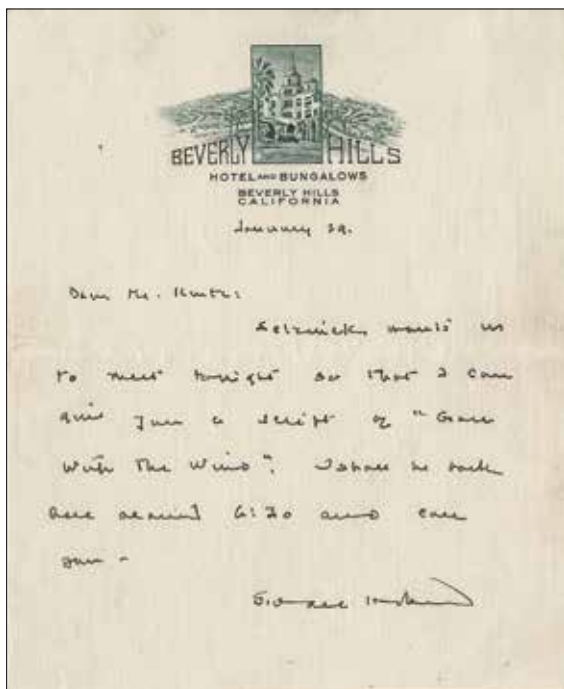 BEVERLY HILLS
HOTEL AND BUNGALOWS
BEVERLY HILLS
CALIFORNIA
January 29.
Dear Mr. Kurtz:
Selznick wants us
to meet tonight so that I can
give you a script of "Gone
With The Wind". I shall be back
here around 6:30 and call
you -
Sidney Howard